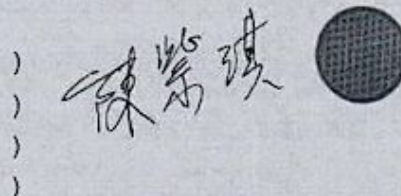 )
) 陳紫琪
)
)